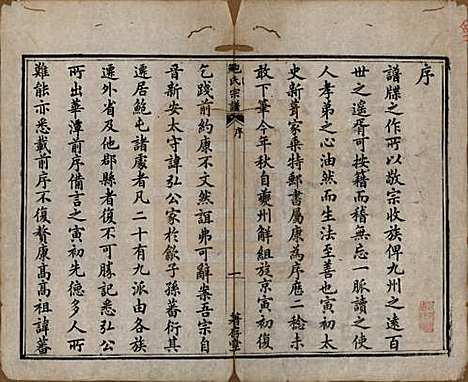 序
譜牒之作所以敬宗收族俾九州之遠百
世之邈胥可按籍而稽無忘一脈讀之使
人孝弟之心油然而生法至善也寅初太
史新葺家乗特郵書屬康為序歷二稔未
敢下筆今年秋自夔州解組旋京寅初復
鮑氏宗譜
序
一
著存堂
乞踐前約康不文然誼弗可辭案吾宗自
晉新安太守諱弘公家於歙子孫蕃衍其
遷居鮑屯諸處者凡二十有九派由各族
遷外省及他郡縣者復不可勝記悉弘公
所出華潭前序備言之寅初先德多人所
難能亦悉載前序不復贅康高高祖諱蕃